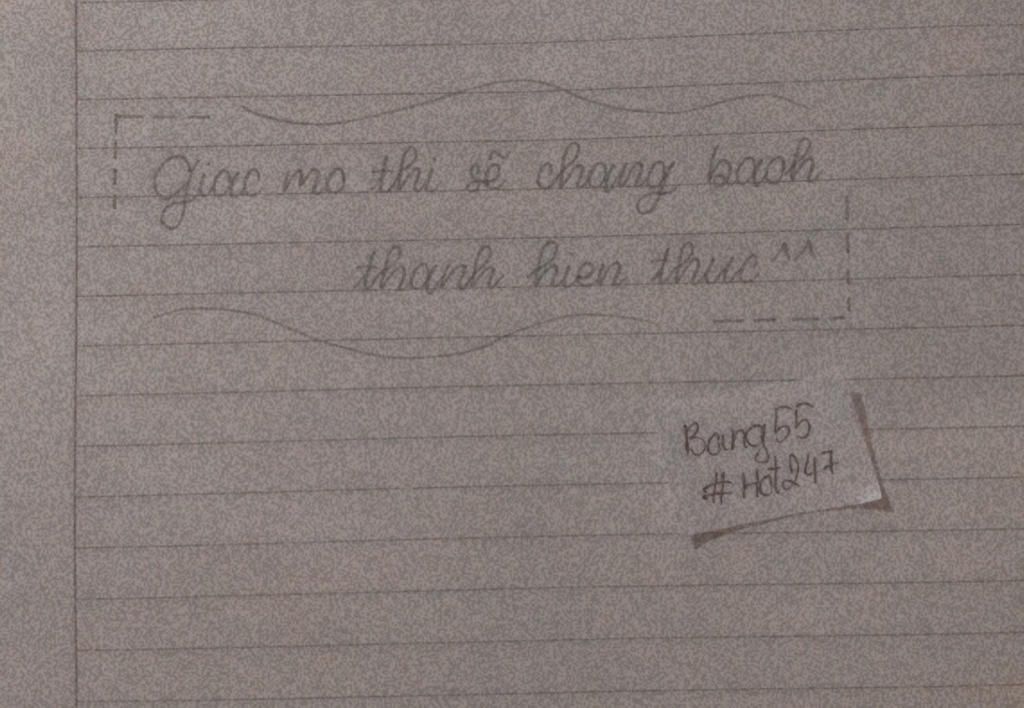 Giac mo thi sẽ chang baoh
thanh hien thuc ^^
Bang55
#Hot247